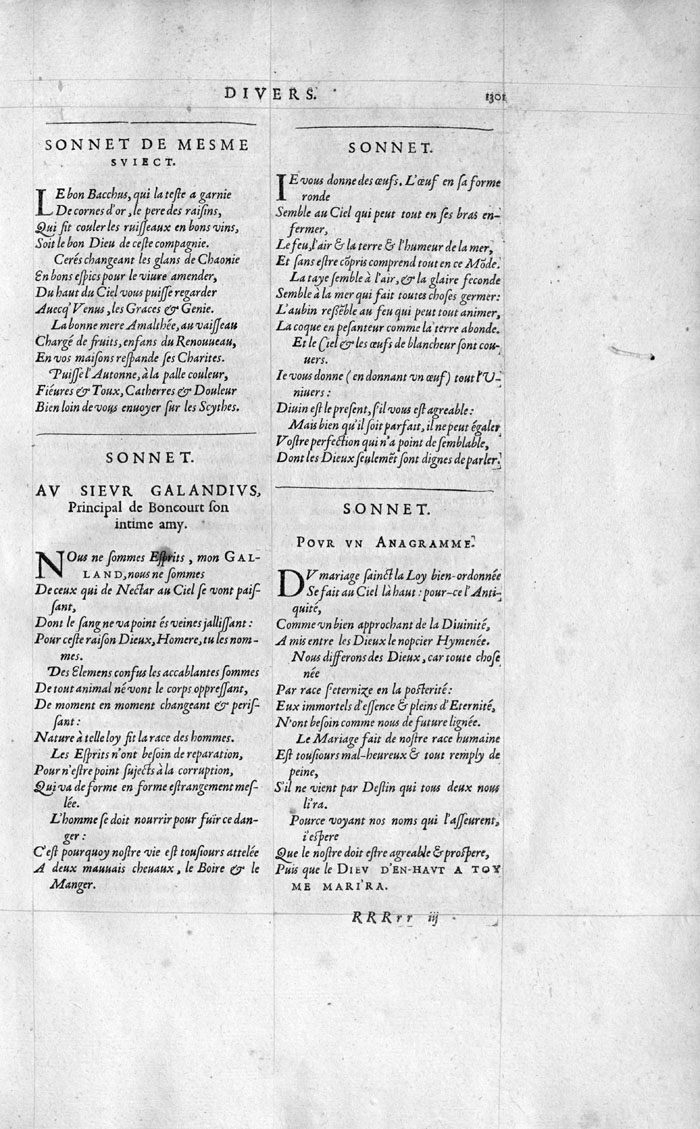 DIVERS.
1301
SONNET DE MESME
SVIECT.
LE bon Bacchus, qui la teste a garnie
De cornes d'or, le pere des raisins,
Qui fit couler les ruisseaux en bons vins,
Soit le bon Dieu de ceste compagnie.
Cerés changeant les glans de Chaonie
En bons espics pour le viure amender,
Du haut du Ciel vous puisse regarder
Auecq' Venus, les Graces & Genie.
La bonne mere Amalthée, au vaisseau
Chargé de fruits, enfans du Renouueau,
En vos maisons respande ses Charites.
Puisse l'Autonne, à la palle couleur,
Fiéures & Toux, Catherres & Douleur
Bien loin de vous enuoyer sur les Scythes.
SONNET.
AV SIEVR GALANDIVS,
Principal de Boncourt son
intime amy.
NOus ne sommes Esprits, mon GAL-
LAND, nous ne sommes
De ceux qui de Nectar au Ciel se vont pais-
sant,
Dont le sang ne va point és veines jallissant:
Pour ceste raison Dieux, Homere, tu les nom-
mes.
Des Elemens confus les accablantes sommes
De tout animal né vont le corps oppressant,
De moment en moment changeant & peris-
sant:
Nature à telle loy fit la race des hommes.
Les Esprits n'ont besoin de reparation,
Pour n'estre point sujects à la corruption,
Qui va de forme en forme estrangement mes-
lée.
L'homme se doit nourrir pour fuir ce dan-
ger:
C'est pourquoy nostre vie est tousiours attelée
A deux mauuais cheuaux, le Boire & le
Manger.
SONNET.
IE vous donne des œufs. L'œuf en sa forme
ronde
Semble au Ciel qui peut tout en ses bras en-
fermer,
Le feu, l'air & la terre & l'humeur de la mer,
Et sans estre cõpris comprend tout en ce Mõde.
La taye semble à l'air, & la glaire feconde
Semble à la mer qui fait toutes choses germer:
L'aubin ressẽble au feu qui peut tout animer,
La coque en pesanteur comme la terre abonde.
Et le Ciel & les œufs de blancheur sont cou-
uers.
Ie vous donne (en donnant vn œuf) tout l'V-
niuers:
Diuin est le present, s'il vous est agreable:
Mais bien qu'il soit parfait, il ne peut égaler
Vostre perfection qui n'a point de semblable,
Dont les Dieux seulemẽt sont dignes de parler.
SONNET.
POVR VN ANAGRAMME.
DV mariage sainct la Loy bien-ordonnée
Se fait au Ciel là haut: pour-ce l'Anti-
quité,
Comme vn bien approchant de la Diuinité,
A mis entre les Dieux le nopcier Hymenée.
Nous differons des Dieux, car toute chose
née
Par race s'eternize en la posterité:
Eux immortels d'essence & pleins d'Eternité,
N'ont besoin comme nous de future lignée.
Le Mariage fait de nostre race humaine
Est tousiours mal-heureux & tout remply de
peine,
S'il ne vient par Destin qui tous deux nous
lira.
Pource voyant nos noms qui l'asseurent,
i'espere
Que le nostre doit estre agreable & prospere,
Puis que le DIEV D'EN-HAVT A TOY
ME MARI'RA.
RRRrr iij